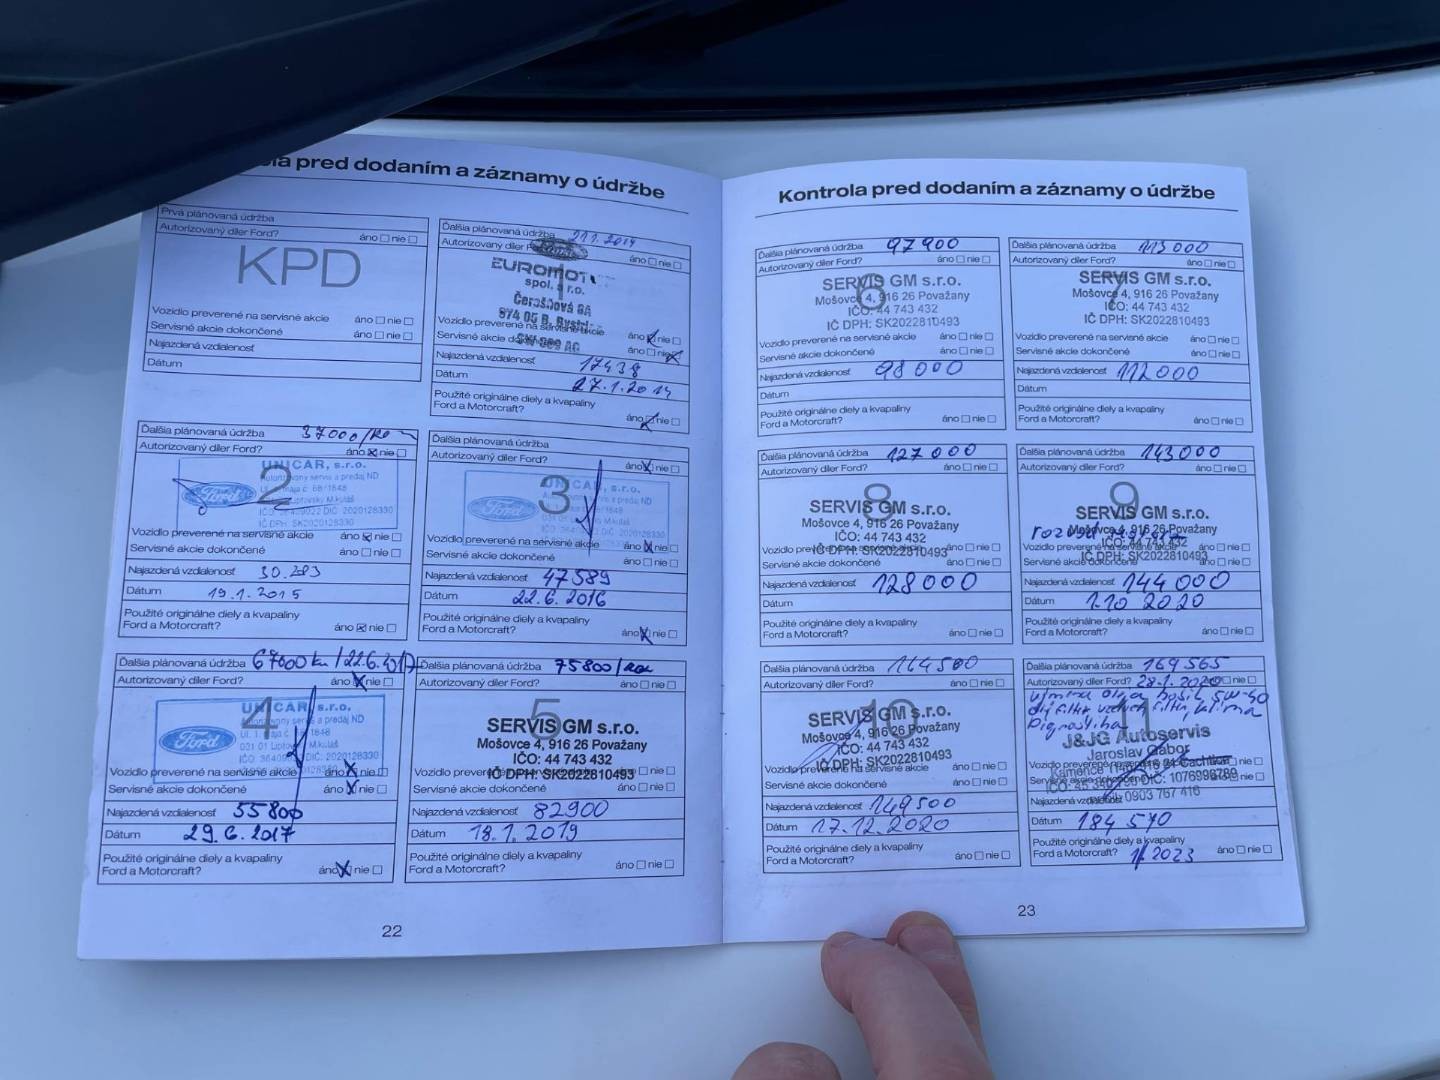 pred dodaním a záznamy o údržbe
Prvá plánovaná údržba
Autorizovaný díler Ford? áno nie
KPD
Vozidlo preverené na servisné akcie áno nie
Servisné akcie dokončené áno nie
Najazdená vzdialenosť
Dátum
Ďalšia plánovaná údržba
Autorizovaný díler áno nie
1
EUROMOT
spol. s r.o.
Vozidlo preverené na servisné akcie
Servisné akcie áno nie
Najazdená vzdialenosť 17438
Dátum 27.1.2014
Použité originálne diely a kvapaliny
Ford a Motorcraft? áno nie
Ďalšia plánovaná údržba 37000/
Autorizovaný díler Ford? áno nie
2
Ford
UNICAR, s.r.o.
Autorizovaný servis a predaj ND
IČ DPH: SK2020128330
Vozidlo preverené na servisné akcie áno nie
Servisné akcie dokončené áno nie
Najazdená vzdialenosť 30.283
Dátum 19.1.2015
Použité originálne diely a kvapaliny
Ford a Motorcraft? áno nie
Ďalšia plánovaná údržba
Autorizovaný díler Ford? áno nie
3
Ford
Vozidlo preverené na servisné akcie áno nie
Servisné akcie dokončené áno nie
Najazdená vzdialenosť 47589
Dátum 22.6.2016
Použité originálne diely a kvapaliny
Ford a Motorcraft? áno nie
Ďalšia plánovaná údržba 67800 km/22.6.
Autorizovaný díler Ford? áno nie
4
Ford
UNICAR, s.r.o.
Vozidlo preverené na servisné akcie áno nie
Servisné akcie dokončené áno nie
Najazdená vzdialenosť 55800
Dátum 29.6.2017
Použité originálne diely a kvapaliny
Ford a Motorcraft? áno nie
Ďalšia plánovaná údržba 75800/rok
Autorizovaný díler Ford? áno nie
5
SERVIS GM s.r.o.
Mošovce 4, 916 26 Považany
IČO: 44 743 432
IČ DPH: SK2022810493
Vozidlo preverené na servisné akcie áno nie
Servisné akcie dokončené áno nie
Najazdená vzdialenosť 82900
Dátum 18.1.2019
Použité originálne diely a kvapaliny
Ford a Motorcraft? áno nie
22
Kontrola pred dodaním a záznamy o údržbe
Ďalšia plánovaná údržba 97900
Autorizovaný díler Ford? áno nie
6
SERVIS GM s.r.o.
Mošovce 4, 916 26 Považany
IČO: 44 743 432
IČ DPH: SK2022810493
Vozidlo preverené na servisné akcie áno nie
Servisné akcie dokončené áno nie
Najazdená vzdialenosť 98000
Dátum
Použité originálne diely a kvapaliny
Ford a Motorcraft? áno nie
Ďalšia plánovaná údržba 113000
Autorizovaný díler Ford? áno nie
7
SERVIS GM s.r.o.
Mošovce 4, 916 26 Považany
IČO: 44 743 432
IČ DPH: SK2022810493
Vozidlo preverené na servisné akcie áno nie
Servisné akcie dokončené áno nie
Najazdená vzdialenosť 112000
Dátum
Použité originálne diely a kvapaliny
Ford a Motorcraft? áno nie
Ďalšia plánovaná údržba 127000
Autorizovaný díler Ford? áno nie
8
SERVIS GM s.r.o.
Mošovce 4, 916 26 Považany
IČO: 44 743 432
IČ DPH: SK2022810493
Vozidlo preverené na servisné akcie áno nie
Servisné akcie dokončené áno nie
Najazdená vzdialenosť 128000
Dátum
Použité originálne diely a kvapaliny
Ford a Motorcraft? áno nie
Ďalšia plánovaná údržba 143000
Autorizovaný díler Ford? áno nie
9
SERVIS GM s.r.o.
Mošovce 4, 916 26 Považany
IČO: 44 743 432
IČ DPH: SK2022810493
Vozidlo preverené na servisné akcie áno nie
Servisné akcie dokončené áno nie
Najazdená vzdialenosť 144000
Dátum 1.10 2020
Použité originálne diely a kvapaliny
Ford a Motorcraft? áno nie
Ďalšia plánovaná údržba 164500
Autorizovaný díler Ford? áno nie
10
SERVIS GM s.r.o.
Mošovce 4, 916 26 Považany
IČO: 44 743 432
IČ DPH: SK2022810493
Vozidlo preverené na servisné akcie áno nie
Servisné akcie dokončené áno nie
Najazdená vzdialenosť 149500
Dátum 17.12.2020
Použité originálne diely a kvapaliny
Ford a Motorcraft? áno nie
Ďalšia plánovaná údržba 169565
Autorizovaný díler Ford? áno nie
11
J&JG Autoservis
Jaroslav Gabor
0903 767 416
Najazdená vzdialenosť
Dátum 184 570
Použité originálne diely a kvapaliny
Ford a Motorcraft? 1/2023 áno nie
23